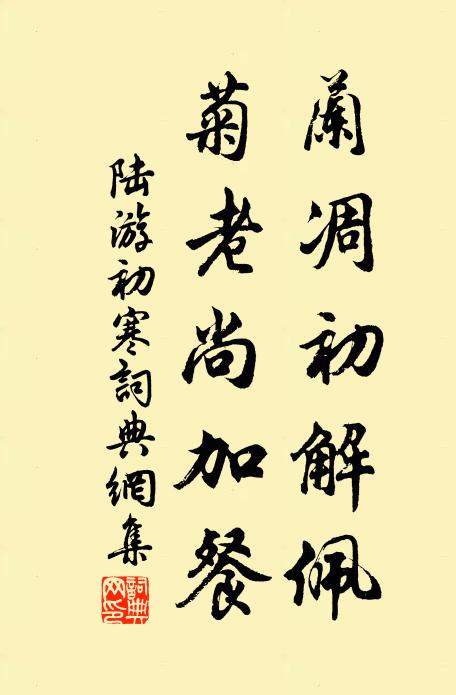 蘭凋初解佩
菊老尚加餐
陆游初寒詞典網集
詞典網印